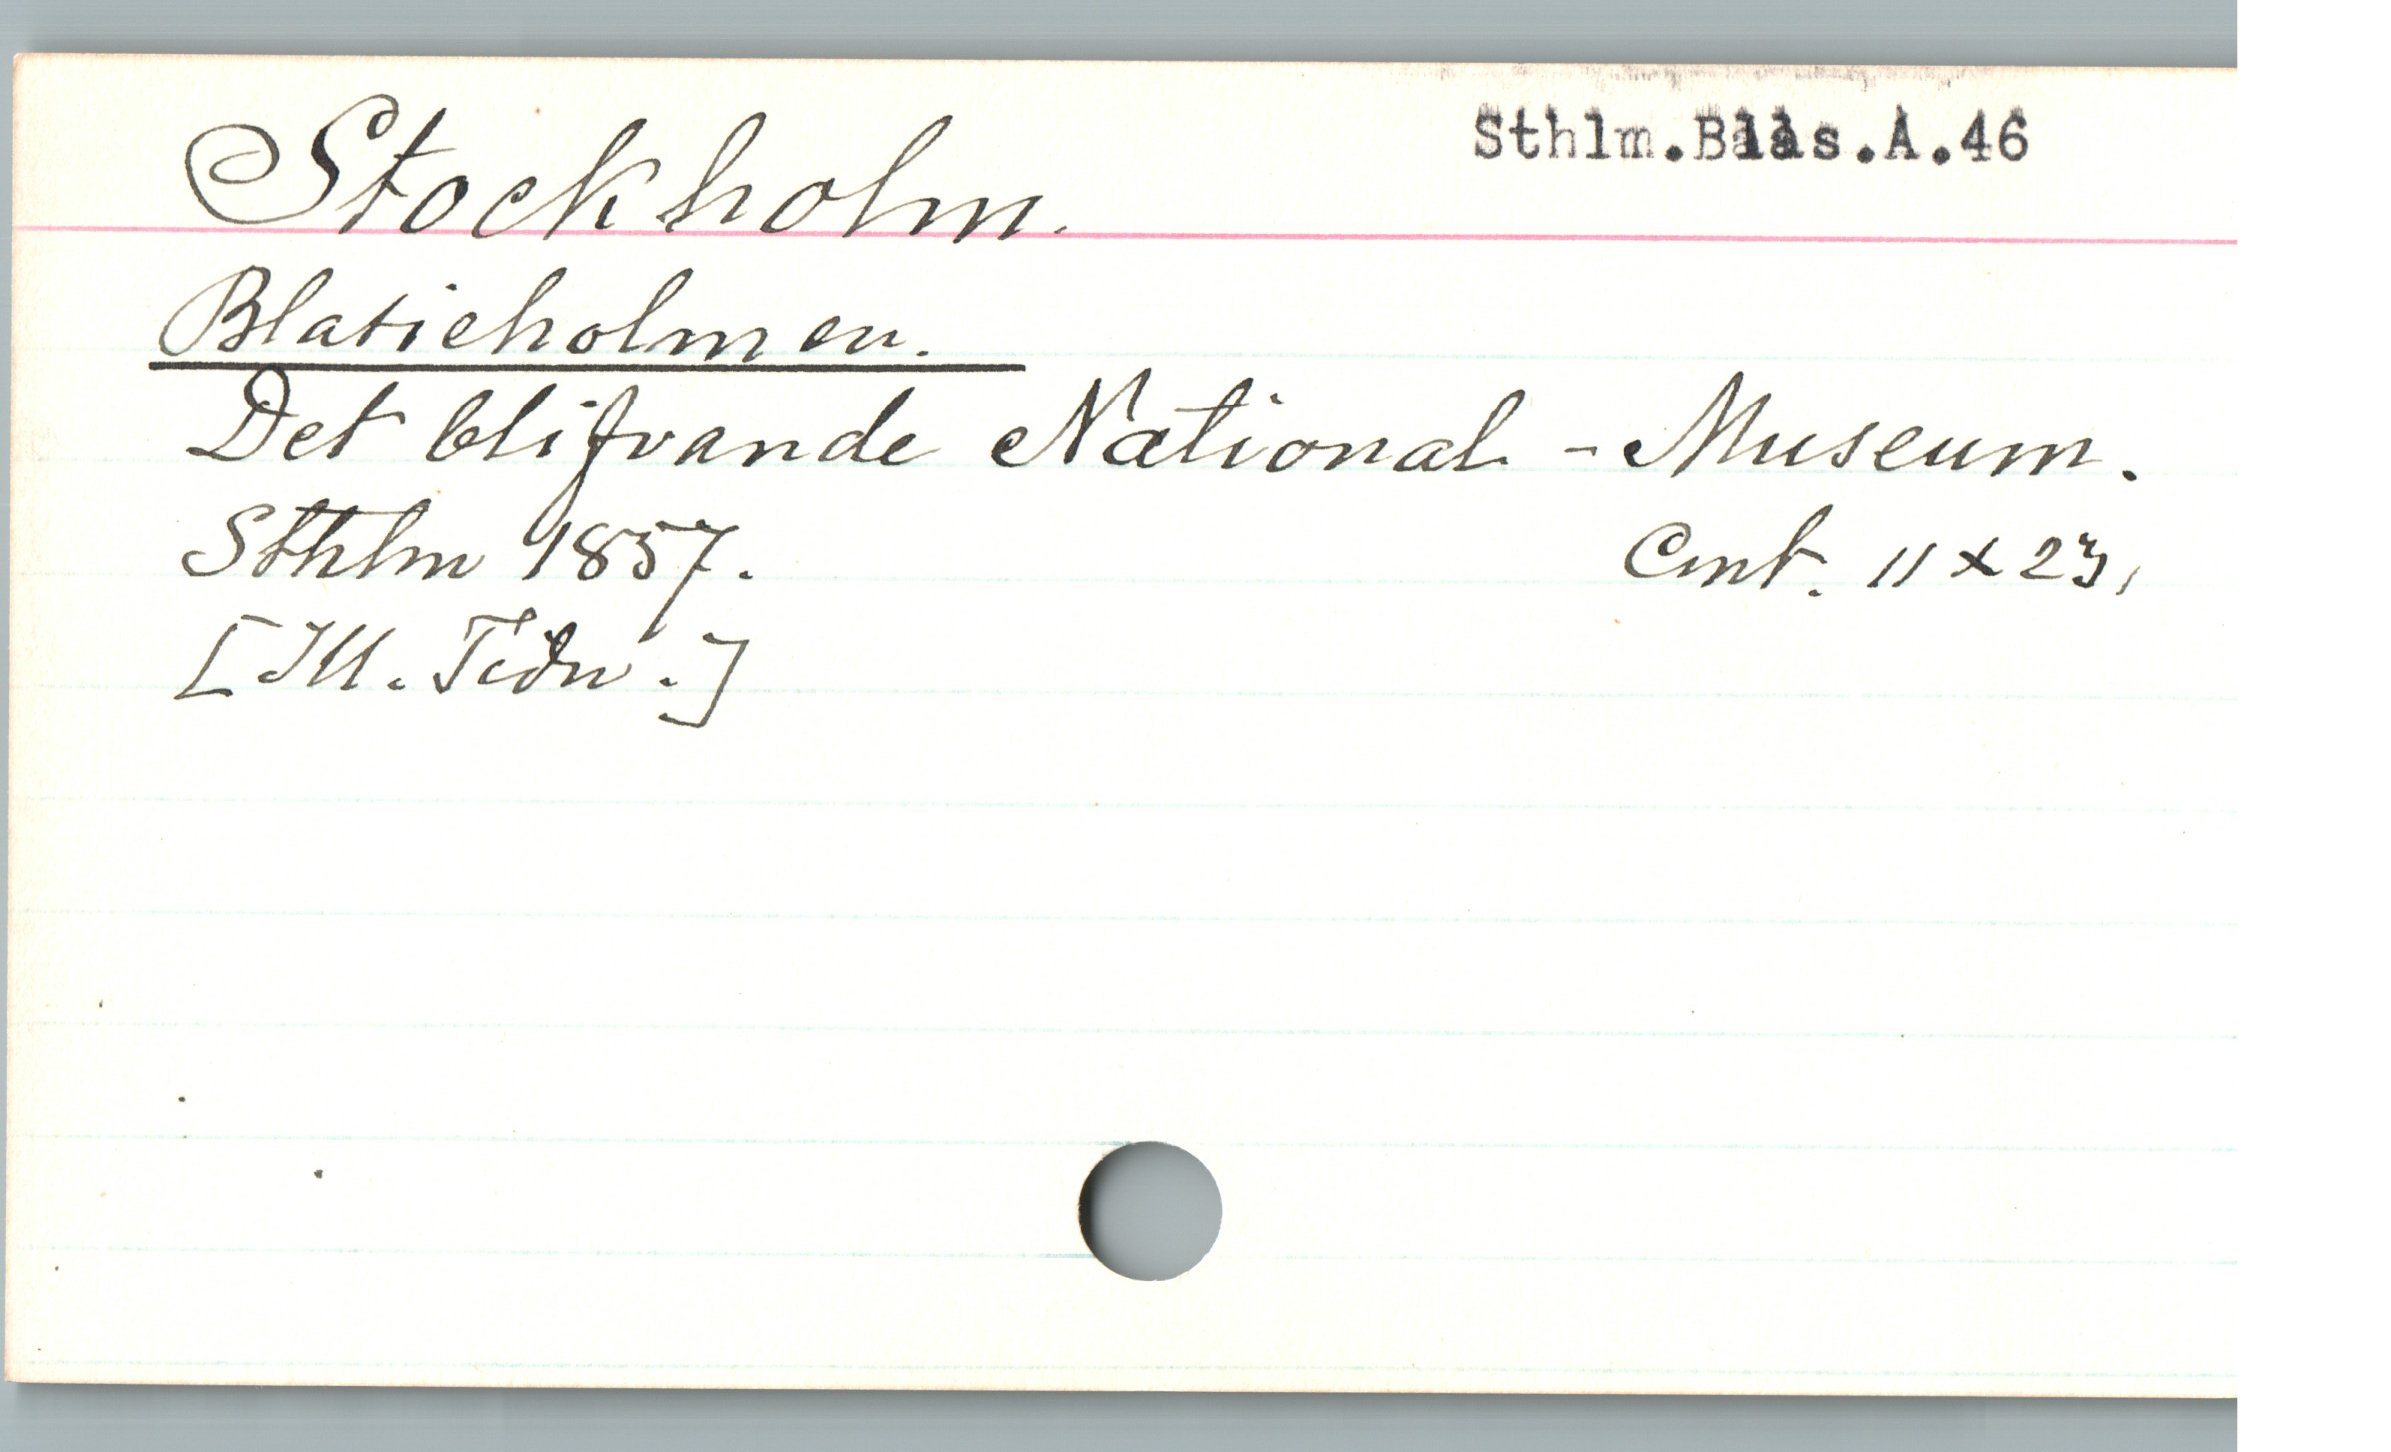 Stockholm.
Sthlm.Blas.A.46
Blasieholmen.
Det blifvande National - Museum.
Sthlm 1857.
Cmt. 11 x 23,
[Ill. Tidn.]